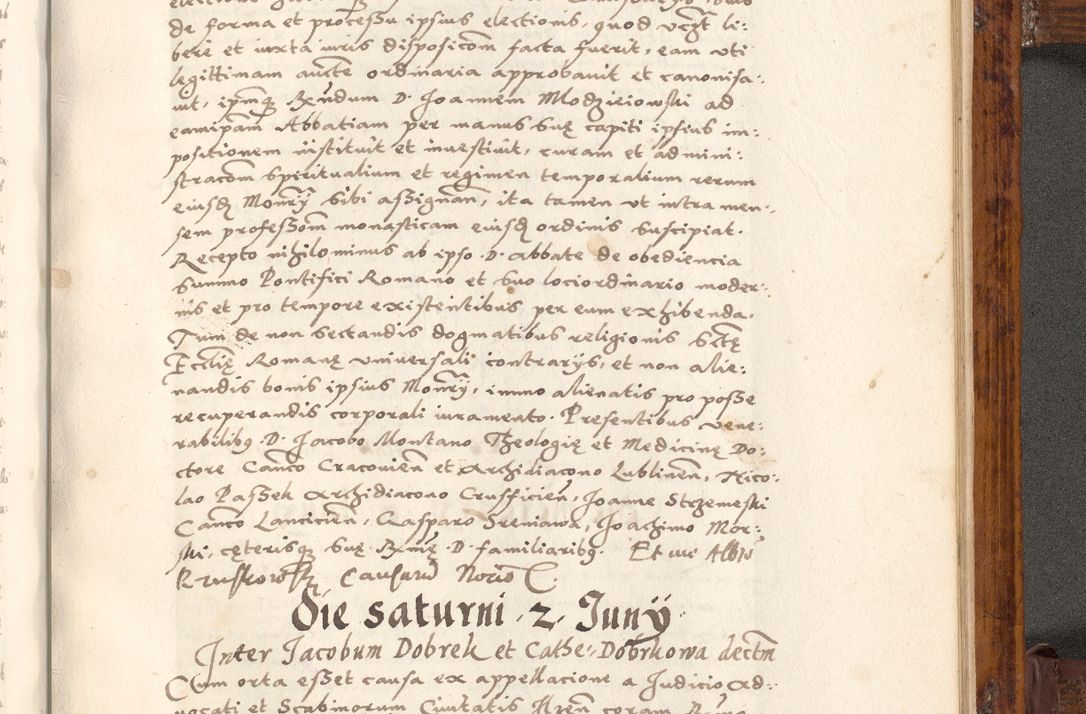 de forma et processu ipsius electionis, quod vegt li:
bere et iuxta iuris disposicom facta fuerit, eam uti
legittimam aucte ordinaria approbauit et canonisa:
uit, ipmq Rzndum D. Joannem Modzieiowski ad
eamipam Abbatiam per manus suę capiti ipsius im:
positionem iistituit et inuestiuit, curam et admini:
stracom spiritualium et regimen temporalium rerum
eiusd Monrÿ sibi assignan, ita tamen ut intra men:
sem professom monasticam eiusd ordinis suscipiat.
Recepto nihilominus ab ipso D. abbate de obediencia
summo Pontifici Romano et suo lociordinario moder:
nis et pro tempore existentibus per eum exhibenda.
Tum de non sectandis dogmatibus religionis sctę
Ecclię Romanę universali contrarijs, et non alie:
nandis bonis ipsius Monrÿ, immo alienatis pro posse
recuperandis corporali iuramento. Presentibus vene:
rabilibq D. Jacobo Montano Theologię et Medicinę Do:
ctore Canco Cracovien et Archidiacono Lublinen, Nico:
lao Passek Archidiacono Crusficien, Joanne Strzemeski
Canco Lancicien, Casparo Sreniawa, Joachimo Mor:
ski, cęterisq suę Rzmę D. familiaribq. Et me Alblo
Kruskowsky Causarum Norio
Die saturni 2 Junÿ
Inter Jacobum Dobrek et Cathe: Dobrkowa dectm
Cum orta esset causa ex appellacione a Judicio ad:
uocati et Scabinorum Ciuitatis coram